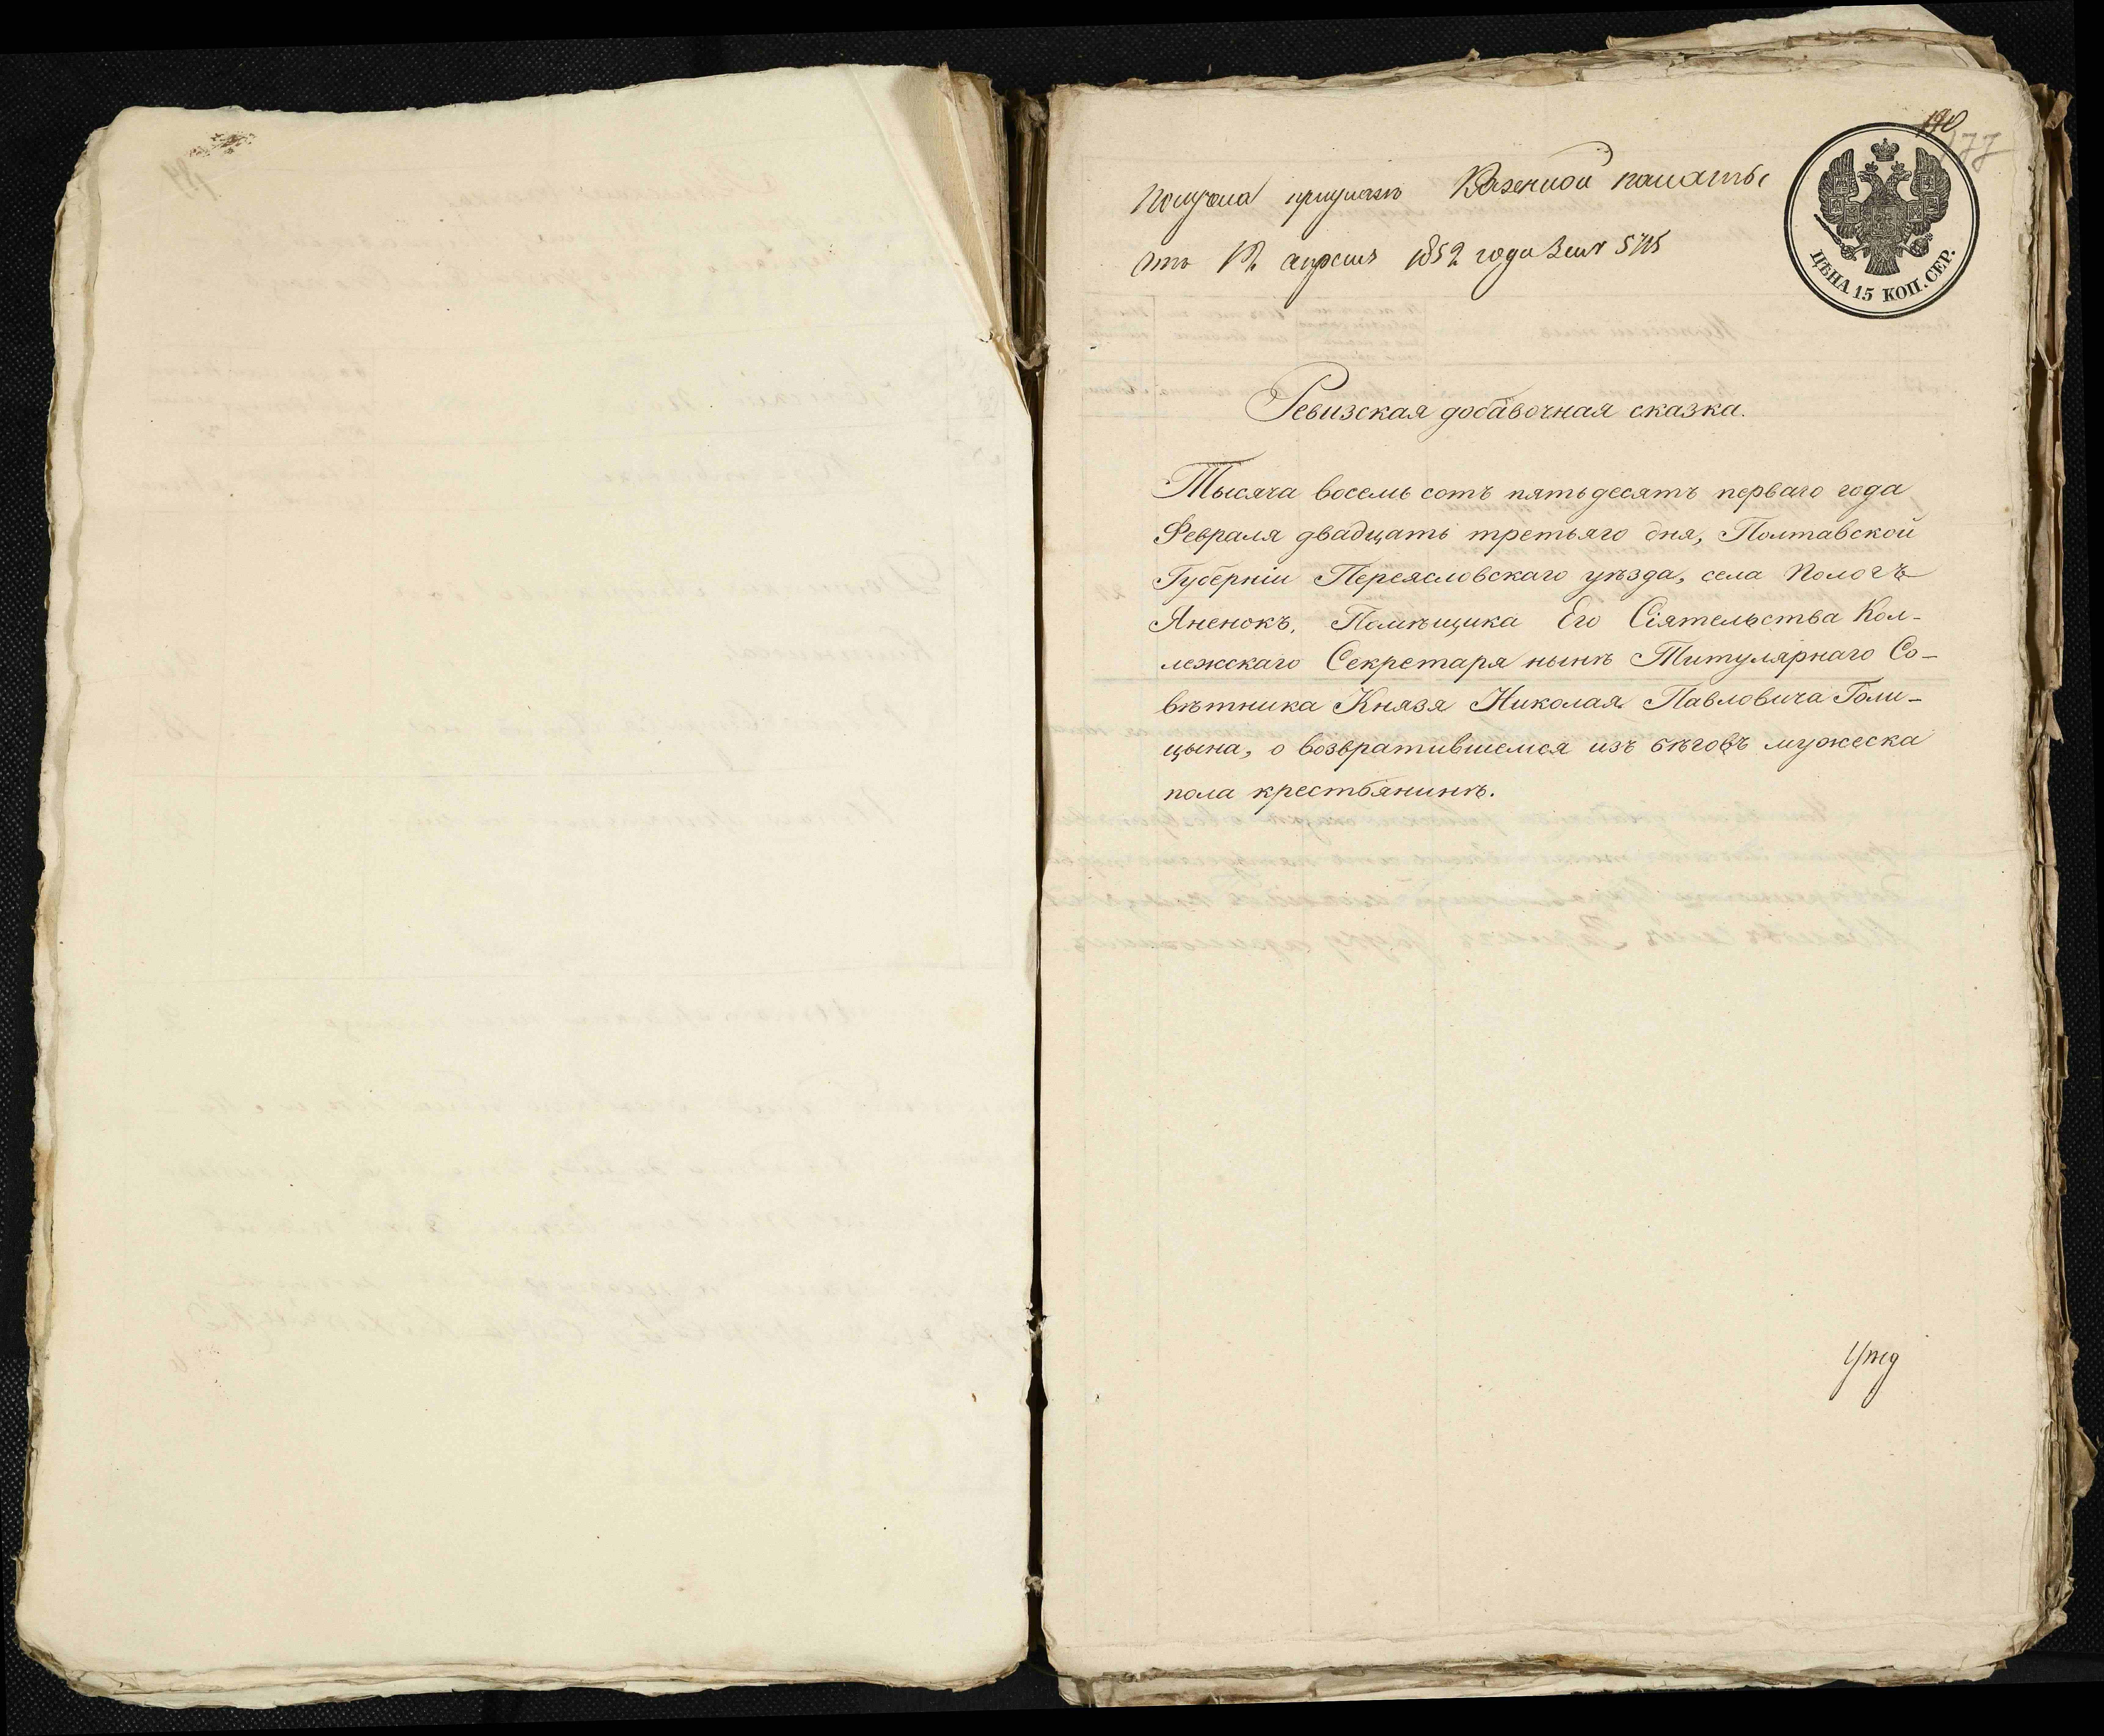 190
177
Получена при указѣ Казенной палаты
отъ 12 апреля 1852 года За № 5715
ЦѢНА 15 КОП. СЕР.
Ревизская добавочная сказка.
Тысяча восемь сотъ пятьдесятъ перваго года
Февраля двадцать третьяго дня, Полтавской
Губерніи Переясловскаго уѣзда, села Пологъ
Яненокъ, Помѣщика Его Сіятельства Кол-
лежскаго Секретаря нынѣ Титулярнаго Со-
вѣтника Князя Николая Павловича Голи-
цына, о возвратившемся изъ бѣговъ мужеска
пола крестьянинѣ.